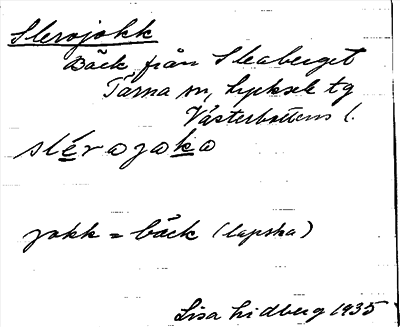 Slerojokk
Bäck från Sleaberget
Tärna sn, Lycksele tg
Västerbottens l.
slérajaka
jokk = bäck (lapska)
Lisa Lidberg 1935